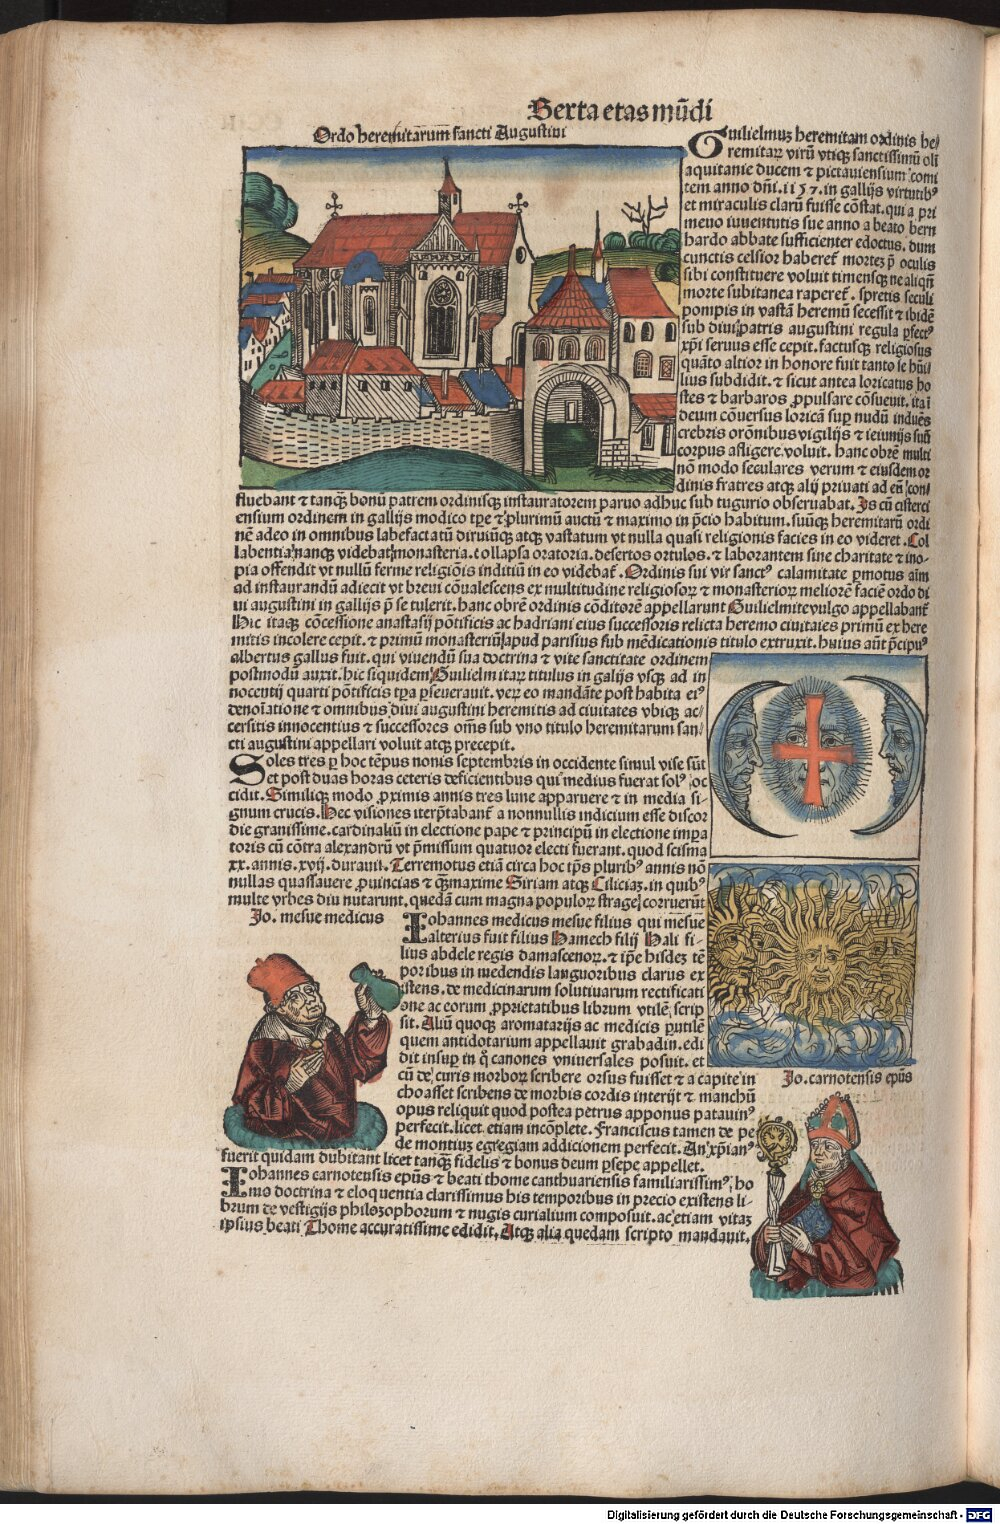 Sexta etas mũdi
Ordo heremitarum sancti Augustini
Guilielmuz heremitam ordinis he/
remitaꝝ virũ vtiqꝫ sanctissimũ oli
aquitanie ducem ⁊ pictauiensium comi
tem anno dñi.1157.in gallijs virtutibꝰ
et miraculis clarũ fuisse cõstat.qui a pri
meuo iuuentutis sue anno a beato bern
hardo abbate sufficienter edoctus. dum
cunctis celsior haberet̃ mortez p̃ oculis
sibi constituere voluit timensqꝫ ne aliqñ
morte subitanea raperet̃. spretis seculi
pompis in vastã heremũ secessit ⁊ ibidẽ
sub diui patris augustini regula ꝑfectꝰ
xp̃i seruus esse cepit.factusqꝫ religiosus
quãto altior in honore fuit tanto se hũi/
lius subdidit.⁊ sicut antea loricatus ho
stes ⁊ barbaros ꝓpulsare cõsueuit.ita ĩ
deum cõuersus loricã suꝑ nudũ induẽs
crebris orõnibus vigilijs ⁊ ieiunijs suũ
corpus afligere voluit. hanc obrẽ multi
nõ modo seculares verum ⁊ eiusdem or
dinis fratres atqꝫ alij priuati ad eũ con/
fluebant ⁊ tanqꝫ̃ bonũ patrem ordinisqꝫ instauratorem paruo adhuc sub tugurio obseruabat. Is cũ cisterci
ensium ordinem in gallijs modico tꝑe ⁊ plurimũ auctũ ⁊ maximo in p̃cio habitum.suũqꝫ heremitarũ ordi
nẽ adeo in omnibus labefactatũ diruiũqꝫ atqꝫ vastatum vt nulla quasi religionis facies in eo videret. Col
labentia nanqꝫ videbat monasteria.collapsa oratoria.desertos ortulos.⁊ laborantem sine charitate ⁊ ino-
pia offendit vt nullũ ferme religiõis inditiũ in eo videbat̃. Ordinis sui vir sanctꝰ calamitate ꝑmotus aĩm
ad instaurandũ adiecit vt breui cõualescens ex multitudine religiosoꝝ ⁊ monasterioꝝ meliorẽ faciẽ ordo di
ui augustini in gallijs p̃ se tulerit.hanc obrẽ ordinis cõditorẽ appellarunt Guilielmite vulgo appellabant̃
Hic itaqꝫ cõcessione anastasij põtificis ac hadriani eius successoris relicta heremo ciuitates primũ ex here
mitis incolere cepit.⁊ primũ monasteriũ apud parisius sub mẽdicationis titulo extruxit.huius aũt p̃cipuꝰ
albertus gallus fuit.qui viuendũ sua doctrina ⁊ vite sanctitate ordinem
postmodũ auxit.hic siquidem Guilielmitaꝝ titulus in galijs vsqꝫ ad in
nocentij quarti põtificis tꝑa ꝑseuerauit.veꝝ eo mandãte post habita eiꝰ
denoiatione ⁊ omnibus diui augustini heremitis ad ciuitates vbiqꝫ ac/
cersitis innocentius ⁊ successores oms̃ sub vno titulo heremitarum san/
cti augustini appellari voluit atqꝫ precepit.
Soles tres ꝑ hoc tẽpus nonis septembris in occidente simul vise sũt
et post duas horas ceteris deficientibus qui medius fuerat solꝰ oc
cidit. Similiqꝫ modo ꝓximis annis tres lune apparuere ⁊ in media si-
gnum crucis.Hec visiones iterp̃tabant̃ a nonnullis indicium esse discor
die grauissime.cardinaliũ in electione pape ⁊ principũ in electione impa
toris cũ cõtra alexandrũ vt p̃missum quatuor electi fuerant.quod scisma
xx.annis.xvij.durauit. Terremotus etiã circa hoc tp̃s pluribꝰ annis nõ
nullas quassauere ꝓuincias ⁊ qꝫ̃maxime Siriam atqꝫ Ciliciaz.in quibꝰ
multe vrbes diu nutarunt.quedã cum magna populoꝝ strage corruerũt
Jo. mesue medicus
Iohannes medicus mesue filius qui mesue
alterius fuit filius Hamech filij Hali fi-
lius abdele regis damascenoꝝ.⁊ ip̃e hisdez tẽ
poribus in medendis languoribus clarus ex
istens.de medicinarum solutiuarum rectificati
one ac eorum ꝓprietatibus librum vtilẽ scrip
sit. Aliũ quoqꝫ aromatarijs ac medicis ꝑutilẽ
quem antidotarium appellauit grabadin.edi
dit insuꝑ in q̃ canones vniuersales posuit.et
cũ de curis morboꝝ scribere orsus fuisset ⁊ a capite in
choasset scribens de morbis cordis interijt ⁊ manchũ
opus reliquit quod postea petrus apponus patauinꝰ
perfecit.licet etiam incõplete.Franciscus tamen de pe
de montiuz egregiam addicionem perfecit. An xp̃ianꝰ
fuerit quidam dubitant licet tanqꝫ̃ fidelis ⁊ bonus deum ꝑsepe appellet.
Jo. carnotensis ep̃us
Iohannes carnotensis ep̃us ⁊ beati thome canthuariensis familiarissimꝰ, ho
mo doctrina ⁊ eloquentia clarissimus his temporibus in precio existens li-
brum de vestigijs philozophorum ⁊ nugis curialium composuit.ac etiam vitaz
ipsius beati Thome accuratissime edidit. Atqꝫ alia quedam scripto mandauit.
Digitalisierung gefördert durch die Deutsche Forschungsgemeinschaft - DFG